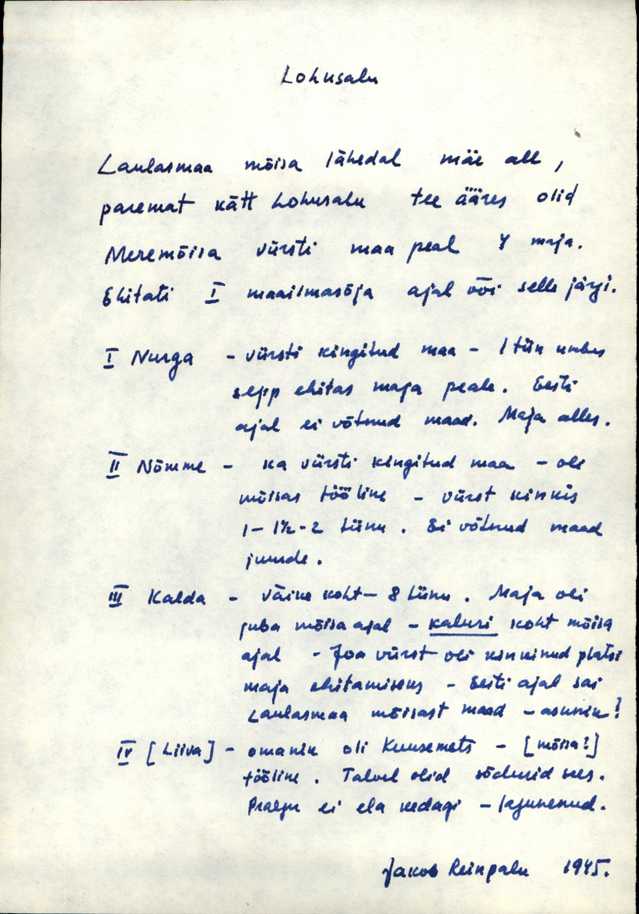 Lohusalu
Laulasmaa mõisa lähedal mäe all,
paremat kätt Lohusalu tee ääres olid
Meremõisa vürsti maa peal 4 maja.
Ehitati I maailmasõja ajal või selle järgi.
I Nurga - vürsti kingitud maa - 1 tiin umbes
sepp ehitas maja peale. Eesti
ajal ei võtnud maad. Maja alles.
II Nõmme - ka vürsti kingitud maa - oli
mõisas tööline - vürst kinkis
1 - 1½ - 2 tiinu. Ei võtnud maad
juurde.
III Kalda - väike koht - 8 tiinu. Maja oli
juba mõisa ajal - kaluri koht mõisa
ajal - Joa vürst oli kinkinud platsi
maja ehitamiseks - Eesti ajal sai
Laulasmaa mõisast maad - asunik?
IV [Liiva] - omanik oli Kuusemets - [mõisa?]
tööline. Talvel olid sõdurid sees.
Praegu ei ela kedagi - lagunenud.
Jakob Reinpalu 1945.